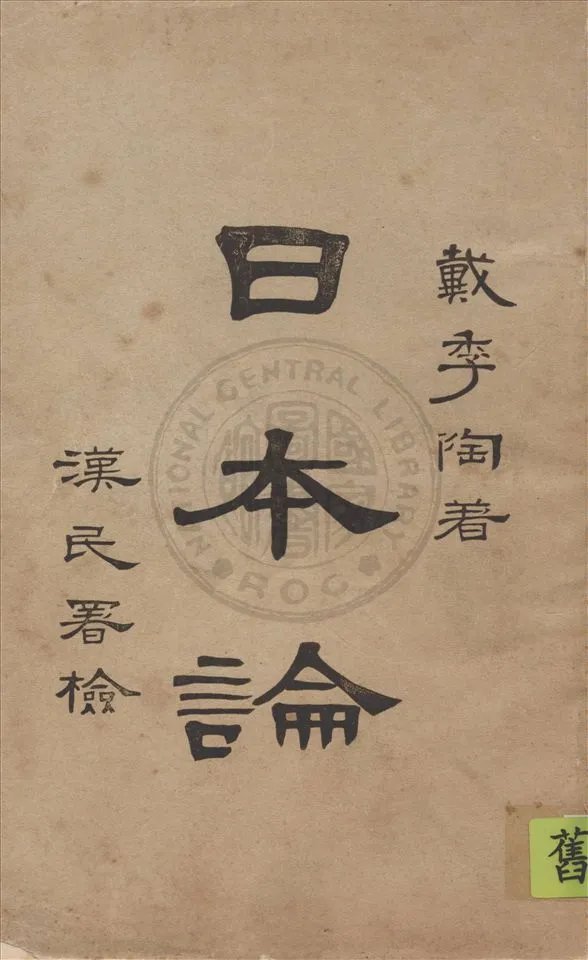 戴季陶著
日本論
漢民署檢
NATIONAL CENTRAL LIBRARY
ROC
舊